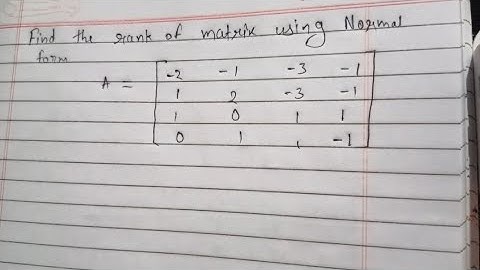 Find the rank of matrix using Normal
form
A = -2 -1 -3 -1
1 2 -3 -1
1 0 1 1
0 1 1 -1